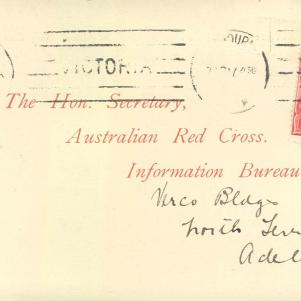 VICTORIA
The Hon. Secretary,
Australian Red Cross.
Information Bureau
Verco Bldgs
North Terr
Adel